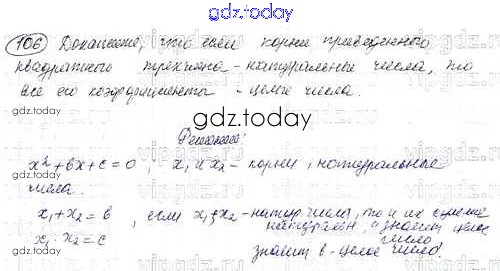 gdz.today
106 Докажите, что если корни приведенного
квадратного трехчлена - натуральные числа, то
все его коэффициенты - целые числа.
gdz.today
Решение:
x² + bx + c = 0, x₁ и x₂ - корни, натуральные
числа.
x₁ + x₂ = b, если x₁ и x₂ - натур числа, то и их сумма
x₁ · x₂ = c натуральн, а значит целое
число
значит b - целое число.
gdz.today